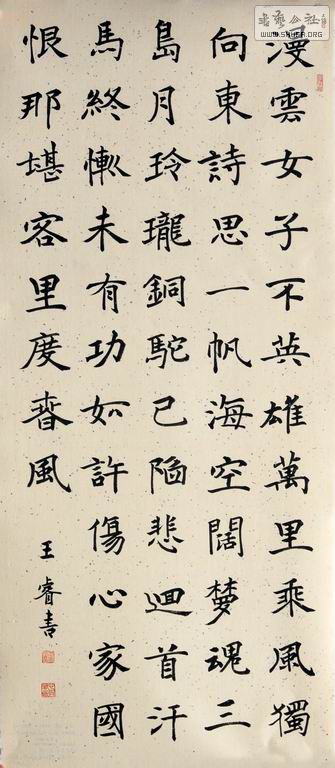 漫雲女子不英雄萬里乘風獨
向東詩思一帆海空闊夢魂三
島月玲瓏銅駝已陷悲迴首汗
馬終慚未有功如許傷心家國
恨那堪客里度春風
王睿書
書藝公社
WWW.SHUFA.ORG